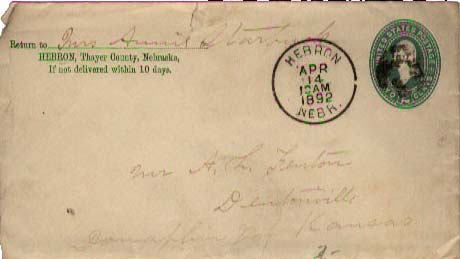 Return to Mrs Annie
HEBRON, Thayer County, Nebraska,
If not delivered within 10 days.
HEBRON
APR
14
12AM
1892
NEBR.
UNITED STATES POSTAGE
TWO CENTS
Mr A. L. Fenton
Dentonville
Kansas